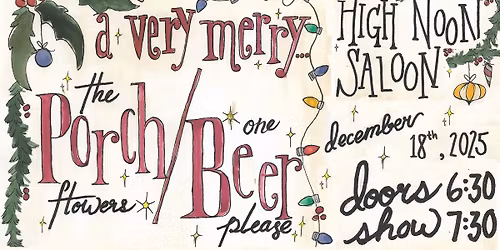 a very merry...
the
Porch/Beer
one
flowers
please
HIGH NOON
SALOON
december
18th, 2025
doors 6:30
show 7:30